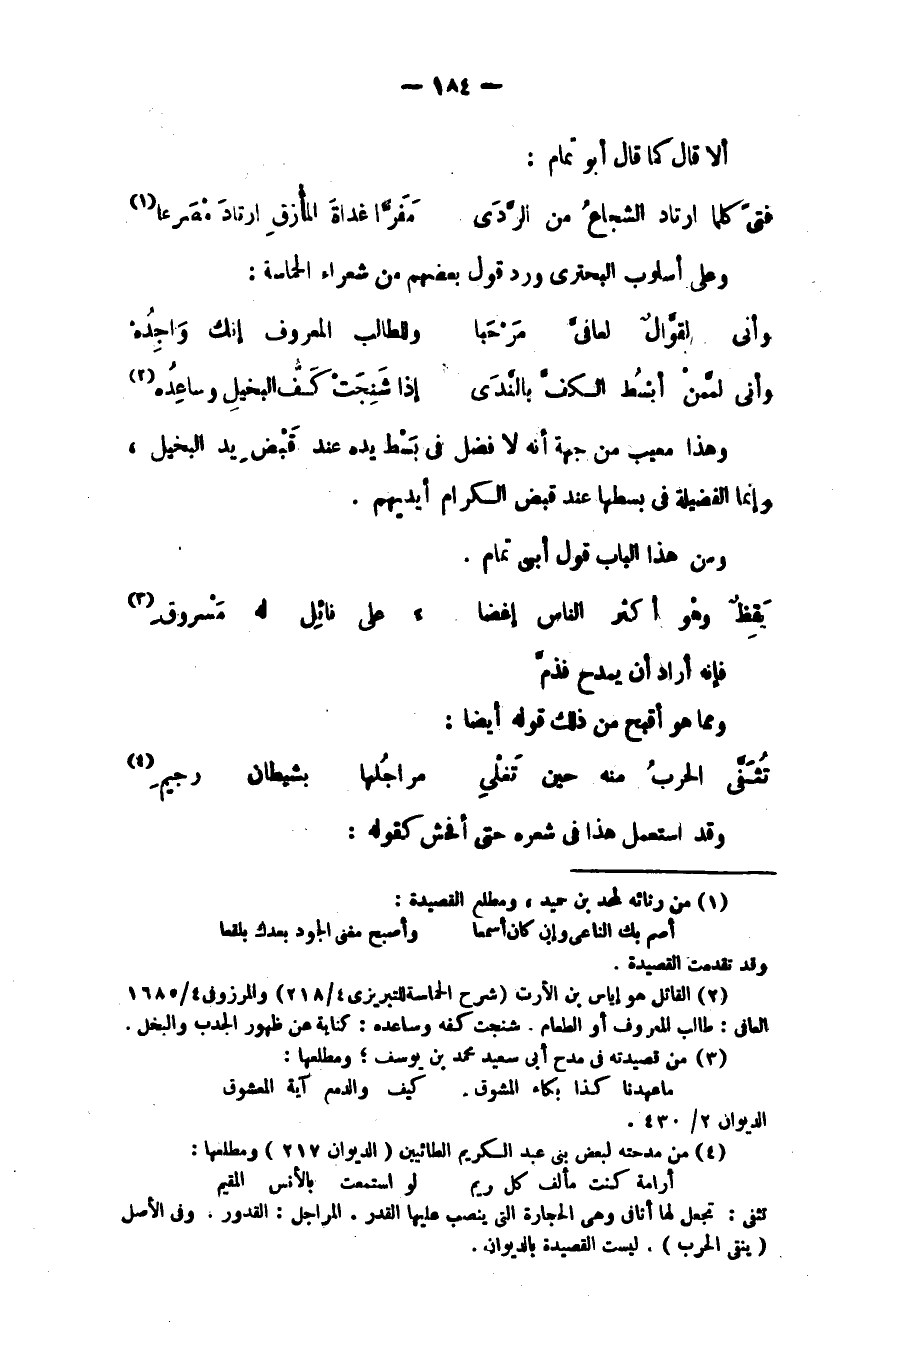 — ١٨٤ —
ألا قال كما قال أبو تمام :
فتىً كلما ارتاد الشجاعُ من الرَّدَى مَفَرًّا غداةَ المأْزقِ ارتادَ مْصَرعا(١)
وعلى أسلوب البحترى ورد قول بعضهم من شعراء الحماسة :
وأنى لقوَّالٌ لعافىَّ مَرْحَبا وللطالب المعروف إنك وَاجِدُهْ
وأنى لممَّنْ أبْسُط الكفَّ بالنَّدَى إذا شَنِجَتْ كَفُّ البخيلِ وساعِدُه(٢)
وهذا معيب من جهة أنه لا فضل فى بَسْط يده عند قَبْض يد البخيل ،
وإنما الفضيلة فى بسطها عند قبض الكرام أيديهم .
ومن هذا الباب قول أبى تمام .
يَقِظٌ وهْو أكثر الناس إغضا ء على نائِلٍ له مَسْروقِ(٣)
فإنه أراد أن يمدح فذمَّ
ومما هو أقبح من ذلك قوله أيضا :
تُثَفَّى الحربُ منه حين تَغلْي مراجُلها بشيطان رجيمِ(٤)
وقد استعمل هذا فى شعره حتى أفحش كقوله :
(١) من رثائه لمحمد بن حميد ، ومطلع القصيدة :
أصم بك الناعى وإن كان أسمعا وأصبح مغنى الجود بعدك بلقعا
وقد تقدمت القصيدة .
(٢) القائل هو إياس بن الأرت (شرح الحماسة للتبريزى ٢١٨/٤) والمرزوقى ١٦٨٥/٤
العافى : طالب المعروف أو الطعام . شنجت كفه وساعده : كناية عن ظهور الجدب والبخل .
(٣) من قصيدته فى مدح أبى سعيد محمد بن يوسف ؛ ومطلعها :
ماعهدنا كذا بكاء المشوق . كيف والدمع آية المعشوق
الديوان ٢/ ٤٣٠ .
(٤) من مدحته لبعض بنى عبد الكريم الطائيين ( الديوان ٢١٧ ) ومطلعها :
أرامة كنت مألف كل ريم لو استمعت بالأنس المقيم
تثفى : تجعل لها أثافى وهى الحجارة التى ينصب عليها القدر . المراجل : القدور . وفى الأصل
( ينتى الحرب ) . ليست القصيدة بالديوان .